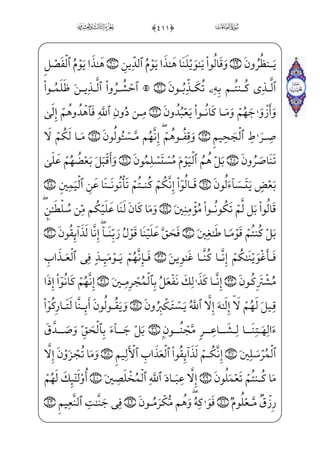 ﴿٤١١﴾
يَنظُرُونَ ١٩ وَقَالُوا۟ يَـٰوَيْلَنَا هَـٰذَا يَوْمُ ٱلدِّينِ ٢٠ هَـٰذَا يَوْمُ ٱلْفَصْلِ
ٱلَّذِى كُنتُم بِهِۦ تُكَذِّبُونَ ٢١ ۞ ٱحْشُرُوا۟ ٱلَّذِينَ ظَلَمُوا۟
وَأَزْوَٰجَهُمْ وَمَا كَانُوا۟ يَعْبُدُونَ ٢٢ مِن دُونِ ٱللَّهِ فَٱهْدُوهُمْ إِلَىٰ
صِرَٰطِ ٱلْجَحِيمِ ٢٣ وَقِفُوهُمْ ۖ إِنَّهُم مَّسْـُٔولُونَ ٢٤ مَا لَكُمْ لَا
تَنَاصَرُونَ ٢٥ بَلْ هُمُ ٱلْيَوْمَ مُسْتَسْلِمُونَ ٢٦ وَأَقْبَلَ بَعْضُهُمْ عَلَىٰ
بَعْضٍ يَتَسَآءَلُونَ ٢٧ قَالُوٓا۟ إِنَّكُمْ كُنتُمْ تَأْتُونَنَا عَنِ ٱلْيَمِينِ ٢٨
قَالُوا۟ بَل لَّمْ تَكُونُوا۟ مُؤْمِنِينَ ٢٩ وَمَا كَانَ لَنَا عَلَيْكُم مِّن سُلْطَـٰنٍۭ ۖ
بَلْ كُنتُمْ قَوْمًا طَـٰغِينَ ٣٠ فَحَقَّ عَلَيْنَا قَوْلُ رَبِّنَآ ۖ إِنَّا لَذَآئِقُونَ ٣١
فَأَغْوَيْنَـٰكُمْ إِنَّا كُنَّا غَـٰوِينَ ٣٢ فَإِنَّهُمْ يَوْمَئِذٍ فِى ٱلْعَذَابِ
مُشْتَرِكُونَ ٣٣ إِنَّا كَذَٰلِكَ نَفْعَلُ بِٱلْمُجْرِمِينَ ٣٤ إِنَّهُمْ كَانُوٓا۟ إِذَا
قِيلَ لَهُمْ لَآ إِلَـٰهَ إِلَّا ٱللَّهُ يَسْتَكْبِرُونَ ٣٥ وَيَقُولُونَ أَئِنَّا لَتَارِكُوٓا۟
ءَالِهَتِنَا لِشَاعِرٍ مَّجْنُونٍۭ ٣٦ بَلْ جَآءَ بِٱلْحَقِّ وَصَدَّقَ
ٱلْمُرْسَلِينَ ٣٧ إِنَّكُمْ لَذَآئِقُوا۟ ٱلْعَذَابِ ٱلْأَلِيمِ ٣٨ وَمَا تُجْزَوْنَ إِلَّا
مَا كُنتُمْ تَعْمَلُونَ ٣٩ إِلَّا عِبَادَ ٱللَّهِ ٱلْمُخْلَصِينَ ٤٠ أُو۟لَـٰٓئِكَ لَهُمْ
رِزْقٌ مَّعْلُومٌ ٤١ فَوَٰكِهُ ۖ وَهُم مُّكْرَمُونَ ٤٢ فِى جَنَّـٰتِ ٱلنَّعِيمِ ٤٣